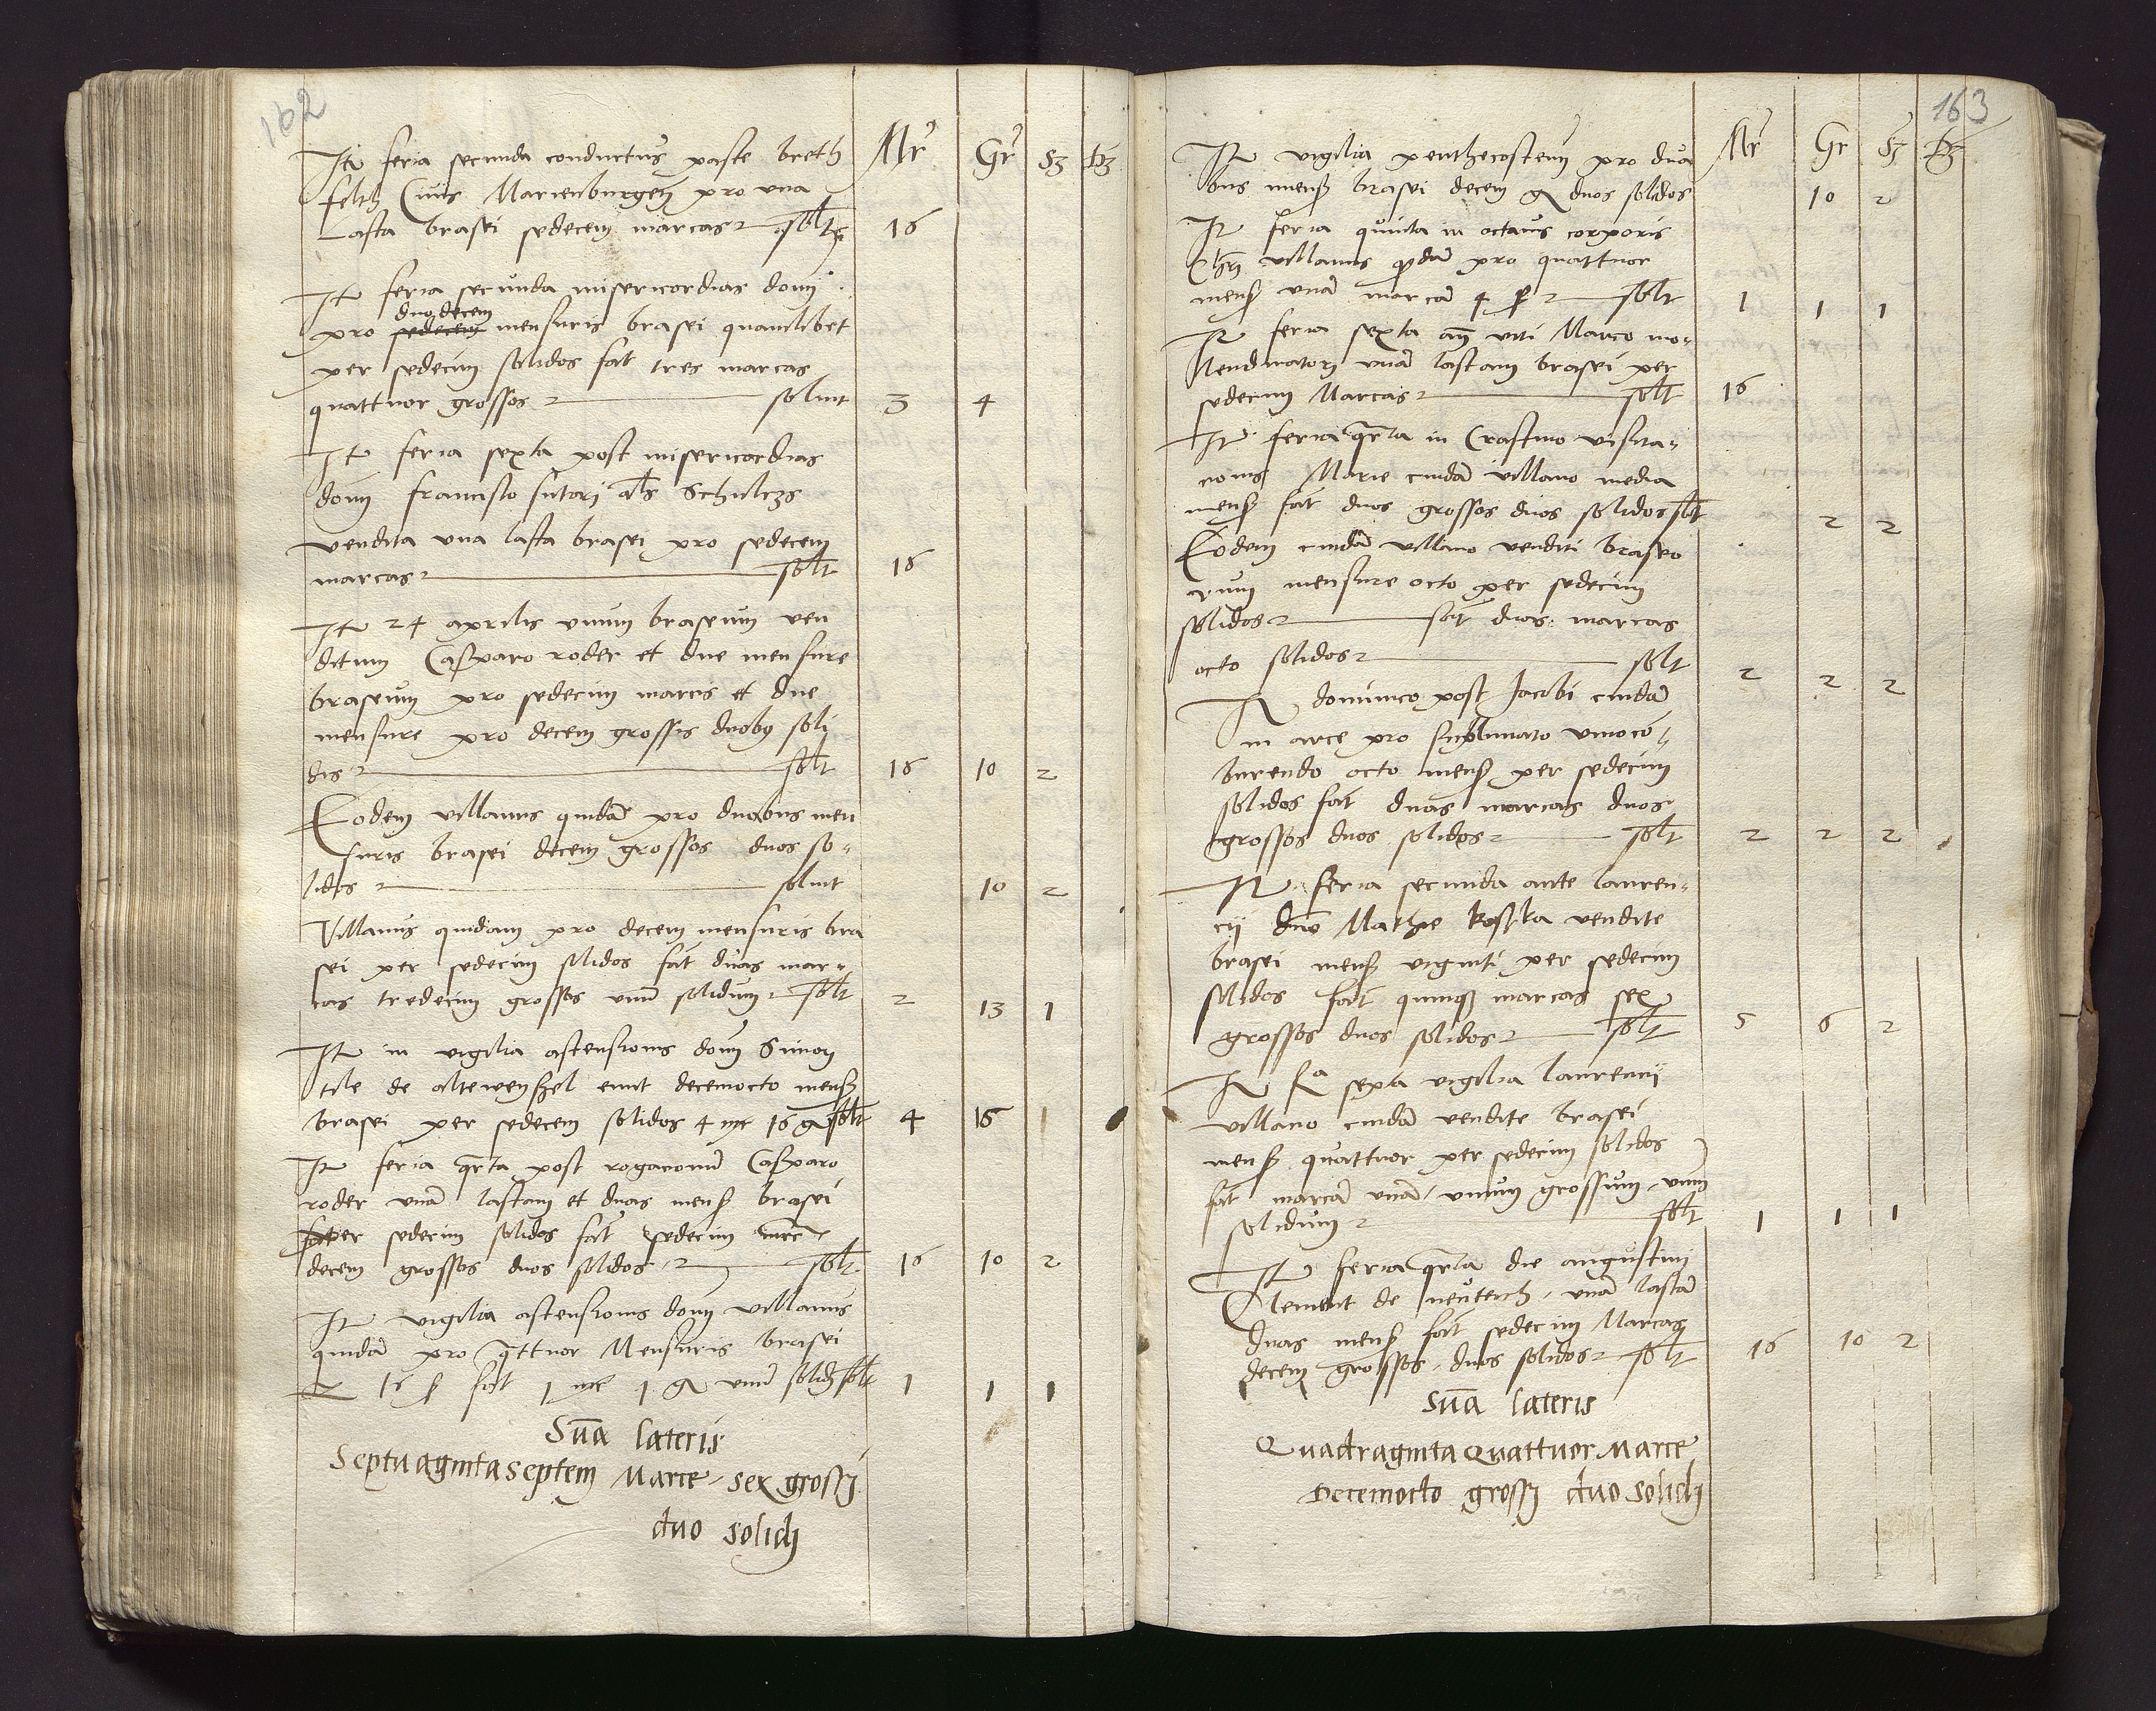 162
Mr Gr Sz
It feria secunda conductus paste breth
feltz Civis Marienburgen pro una
Lasta brasei sedecem marcas solt 16
It feria secunda misericordias domi
duodecem
pro sedecem mensuris brasei quamlibet
per sedecim solidos fat tres marcas
quattuor grossos solvit 3 4
It feria sexta post misericordias
domi francisco sutori als Schulczs
vendita una lasta brasei pro sedecem
marcas solt 16
It 24 aprilis unum braseum ven
ditum Casparo roder et due mensure
braseum pro sedecim marcis et due
mensure pro decem grossis duobus soli
dis solt 16 10 2
Eodem villanus quidam pro duabus men
suris brasei decem grossos duos so-
lidos solvit 10 2
Villanus quidam pro decem mensuris bra
sei per sedecim solidos fat duas mar-
cas tredecim grossos unum solidum solt 2 13 1
It in vigilia astensionis domi Simon
tile de altewenszel emit decemocto mens
brasei per sedecem solidos 4 mr 16 gr solt 4 16 1
It feria qrta post rogacionum Casparo
roder una lastam et duas mens brasei
per sedecim solidos fat sedecim mrc
decem grossos duos solidos solt 16 10 2
It vigilia astensionis domi villanus
quidam pro qttuor Mensuris brasei
16 s fat 1 mr 1 gr unum solid solt 1 1 1
Suma lateris
Septuagintaseptem Marce sex grossi
duo solidi
163
Mr Gr Sz
It vigilia penthecosten pro dua
bus mens brasei decem gr duos solidos 10 2
It feria quinta in octavis corporis
Chri villanus qdam pro quattuor
mens una marca solt 1 1 1
It feria sexta an viti Marco mo-
lendinatori una lastam brasei per
sedecim Marcas solt 16
It feria qrta in Crastino visita-
cionis Marie cuidam villano media
mens fat duos grossos duos solidos solt 2 2
Eodem cuidam villano venditi braseo
rum mensure octo per sedecim
solidos fat duas marcas
octo solidos solt 2 2 2
It dominico post Jacobi cuidam
in arce pro sublimato vino co-
burendo octo mens per sedecim
solidos fat duas marcas duos
grossos duos solidos solt 2 2 2
It feria secunda ante lauren-
cij dno Mathie Kostka vendite
brasei mens viginti per sedecim
solidos fat quinqz marcas sex
grossos duos solidos solt 5 6 2
It fa sexta vigilia laurencij
villano cuidam vendite brasei
mens quattuor per sedecim solidos
fat marca una unum grossum unum
solidum solt 1 1 1
It feria qrta die augustini
Clement de neuterch una lasta
duas mens fat sedecim Marcas
decem grossos duos solidos solt 16 10 2
Suma lateris
Quadraginta Quattuor Marce
Decemocto grossi duo solidi